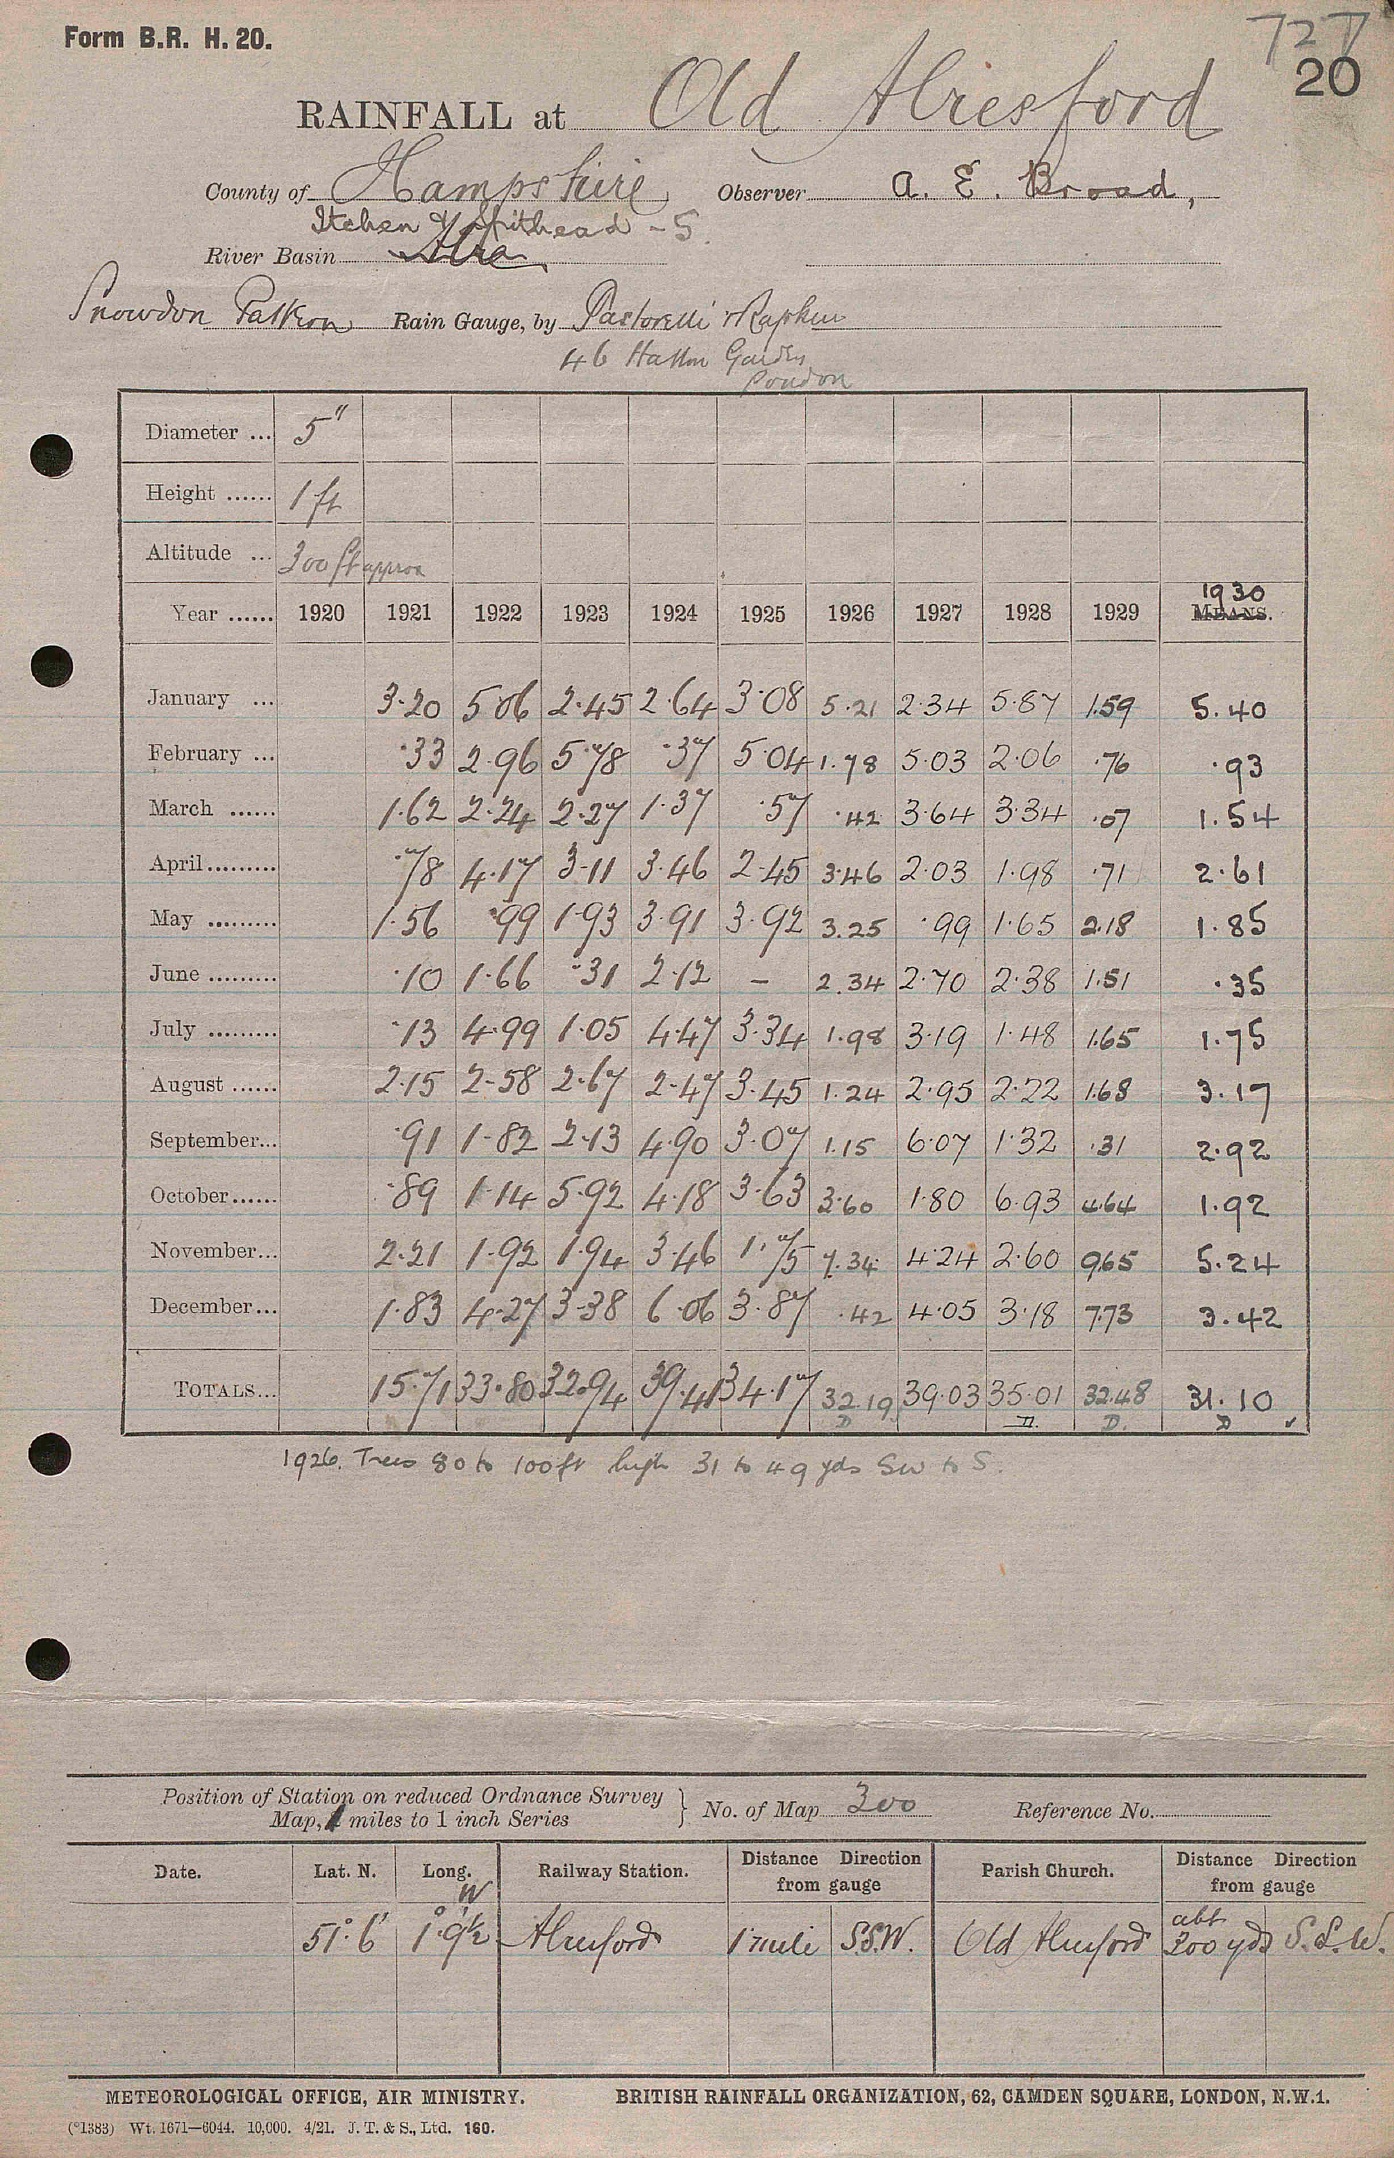 Form B.R. H. 20.
727
20
RAINFALL at Old Alresford
County of Hampshire Observer A. E. Broad,
Itchen & Spithead - 5.
River Basin Alre
Snowdon Pattern Rain Gauge, by Pastorelli & Rapkin
46 Hatton Garden
London
Diameter ... 5"
Height ...... 1 ft
Altitude ... 300 ft approx
1930
Year ...... 1920 1921 1922 1923 1924 1925 1926 1927 1928 1929 MEANS.
January ... 3·20 5·06 2·45 2·64 3·08 5·21 2·34 5·87 1·59 5·40
February ... ·33 2·96 5·78 ·37 5·04 1·78 5·03 2·06 ·76 ·93
March ...... 1·62 2·24 2·27 1·37 ·57 ·42 3·64 3·34 ·07 1·54
April......... ·78 4·17 3·11 3·46 2·45 3·46 2·03 1·98 ·71 2·61
May ......... 1·56 ·99 1·93 3·91 3·92 3·25 ·99 1·65 2·18 1·85
June ......... ·10 1·66 ·31 2·12 – 2·34 2·70 2·38 1·51 ·35
July ......... ·13 4·99 1·05 4·47 3·34 1·98 3·19 1·48 1·65 1·75
August ...... 2·15 2·58 2·67 2·47 3·45 1·24 2·95 2·22 1·68 3·17
September... ·91 1·82 2·13 4·90 3·07 1·15 6·07 1·32 ·31 2·92
October...... ·89 1·14 5·92 4·18 3·63 3·60 1·80 6·93 4·64 1·92
November... 2·21 1·92 1·94 3·46 1·75 7·34 4·24 2·60 9·65 5·24
December... 1·83 4·27 3·38 6·06 3·87 ·42 4·05 3·18 7·73 3·42
TOTALS... 15·71 33·80 32·94 39·41 34·17 32·19 39·03 35·01 32·48 31·10
D D. D. D ✓
1926. Trees 80 to 100 ft high 31 to 49 yds SW to S.
Position of Station on reduced Ordnance Survey
Map, miles to 1 inch Series } No. of Map 300 Reference No.
Date. Lat. N. Long. W Railway Station. Distance Direction from gauge Parish Church. Distance Direction from gauge
51° 6' 1° 9½' Alresford 1 mile S.S.W. Old Alresford abt 300 yds S.S.W.
METEOROLOGICAL OFFICE, AIR MINISTRY. BRITISH RAINFALL ORGANIZATION, 62, CAMDEN SQUARE, LONDON, N.W.1.
(*1383) Wt. 1671—6044. 10,000. 4/21. J. T. & S., Ltd. 160.